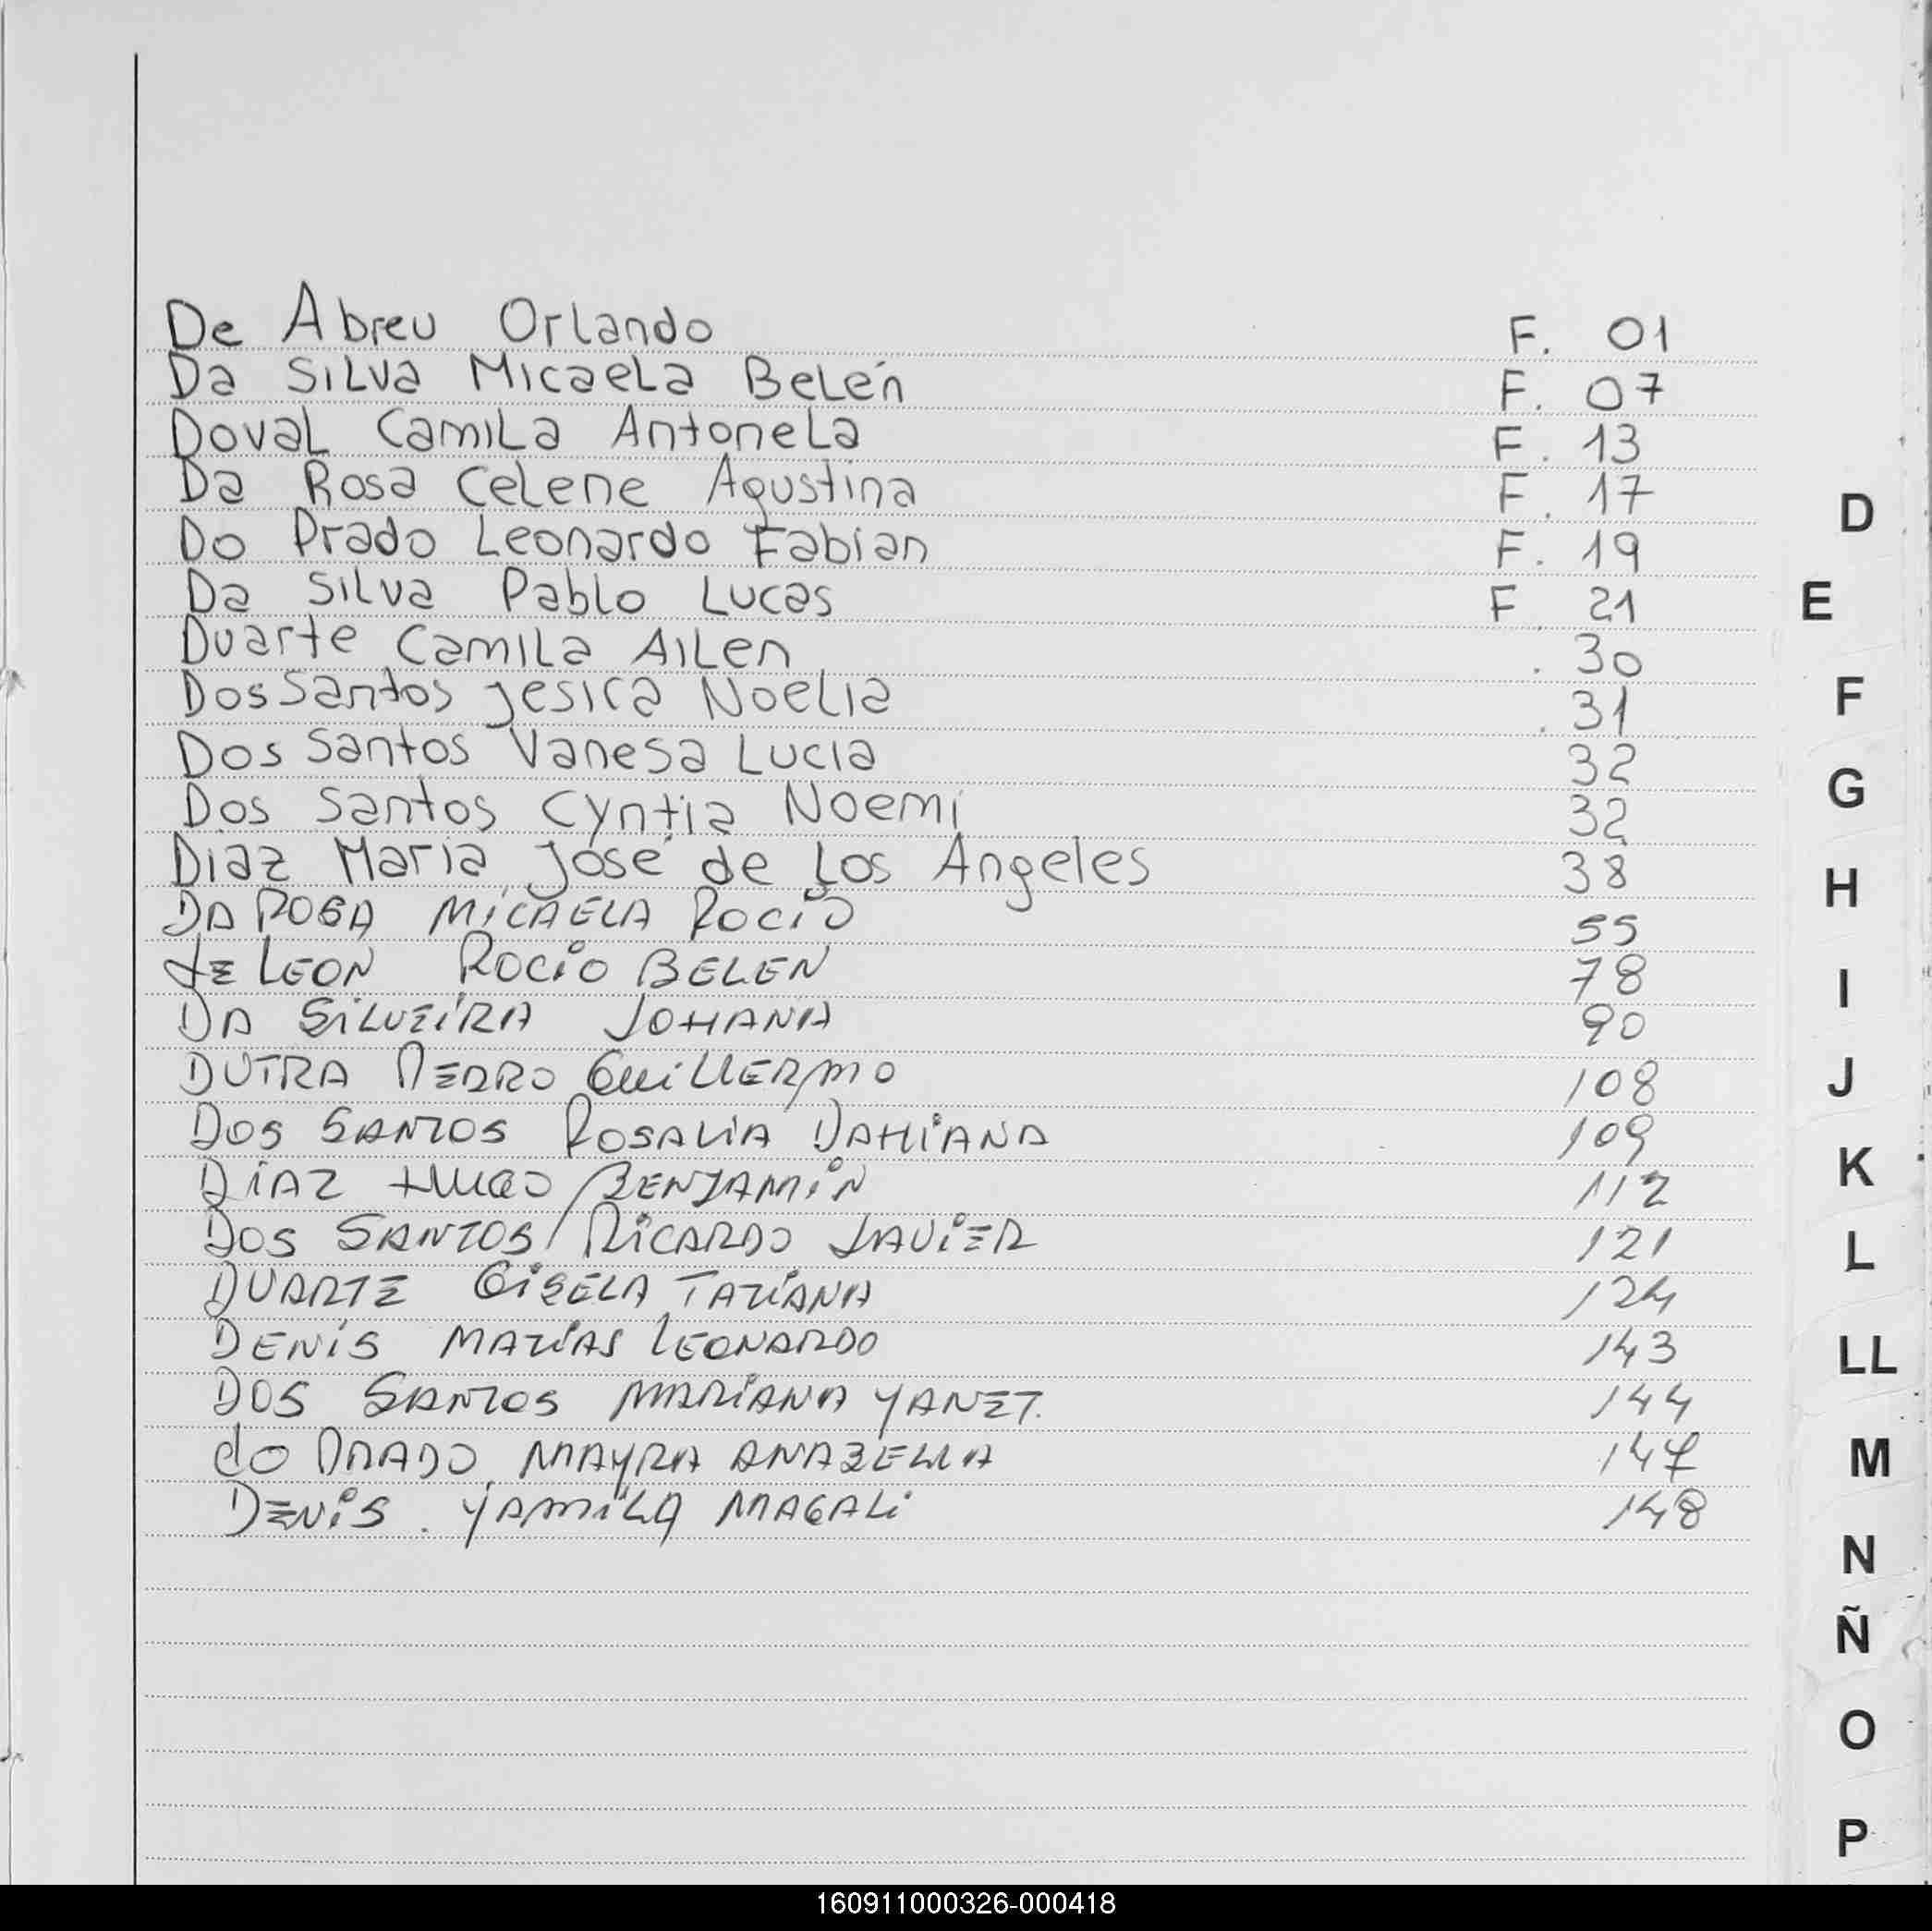 De Abreu Orlando F. 01
Da Silva Micaela Belén F. 07
Doval Camila Antonela F. 13
Da Rosa Celene Agustina F. 17
Do Prado Leonardo Fabian F. 19
Da Silva Pablo Lucas F 21
Duarte Camila Ailen . 30
Dos Santos Jesica Noelia . 31
Dos Santos Vanesa Lucia 32
Dos Santos Cyntia Noemí 32
Diaz Maria José de Los Angeles 38
DA ROSA MICAELA ROCIO 55
de LEON ROCIO BELEN 78
DA SILVEIRA JOHANA 90
DUTRA PEDRO GUILLERMO 108
DOS SANTOS ROSALIA DAHIANA 109
DIAZ HUGO BENJAMIN 112
DOS SANTOS RICARDO JAVIER 121
DUARTE GISELA TATIANA 124
DENIS MATIAS LEONARDO 143
DOS SANTOS MARIANA YANET. 144
do PRADO MAYRA ANABELLA 147
DENIS. YAMILA MAGALI 148
D
E
F
G
H
I
J
K
L
LL
M
N
Ñ
O
P
160911000326-000418